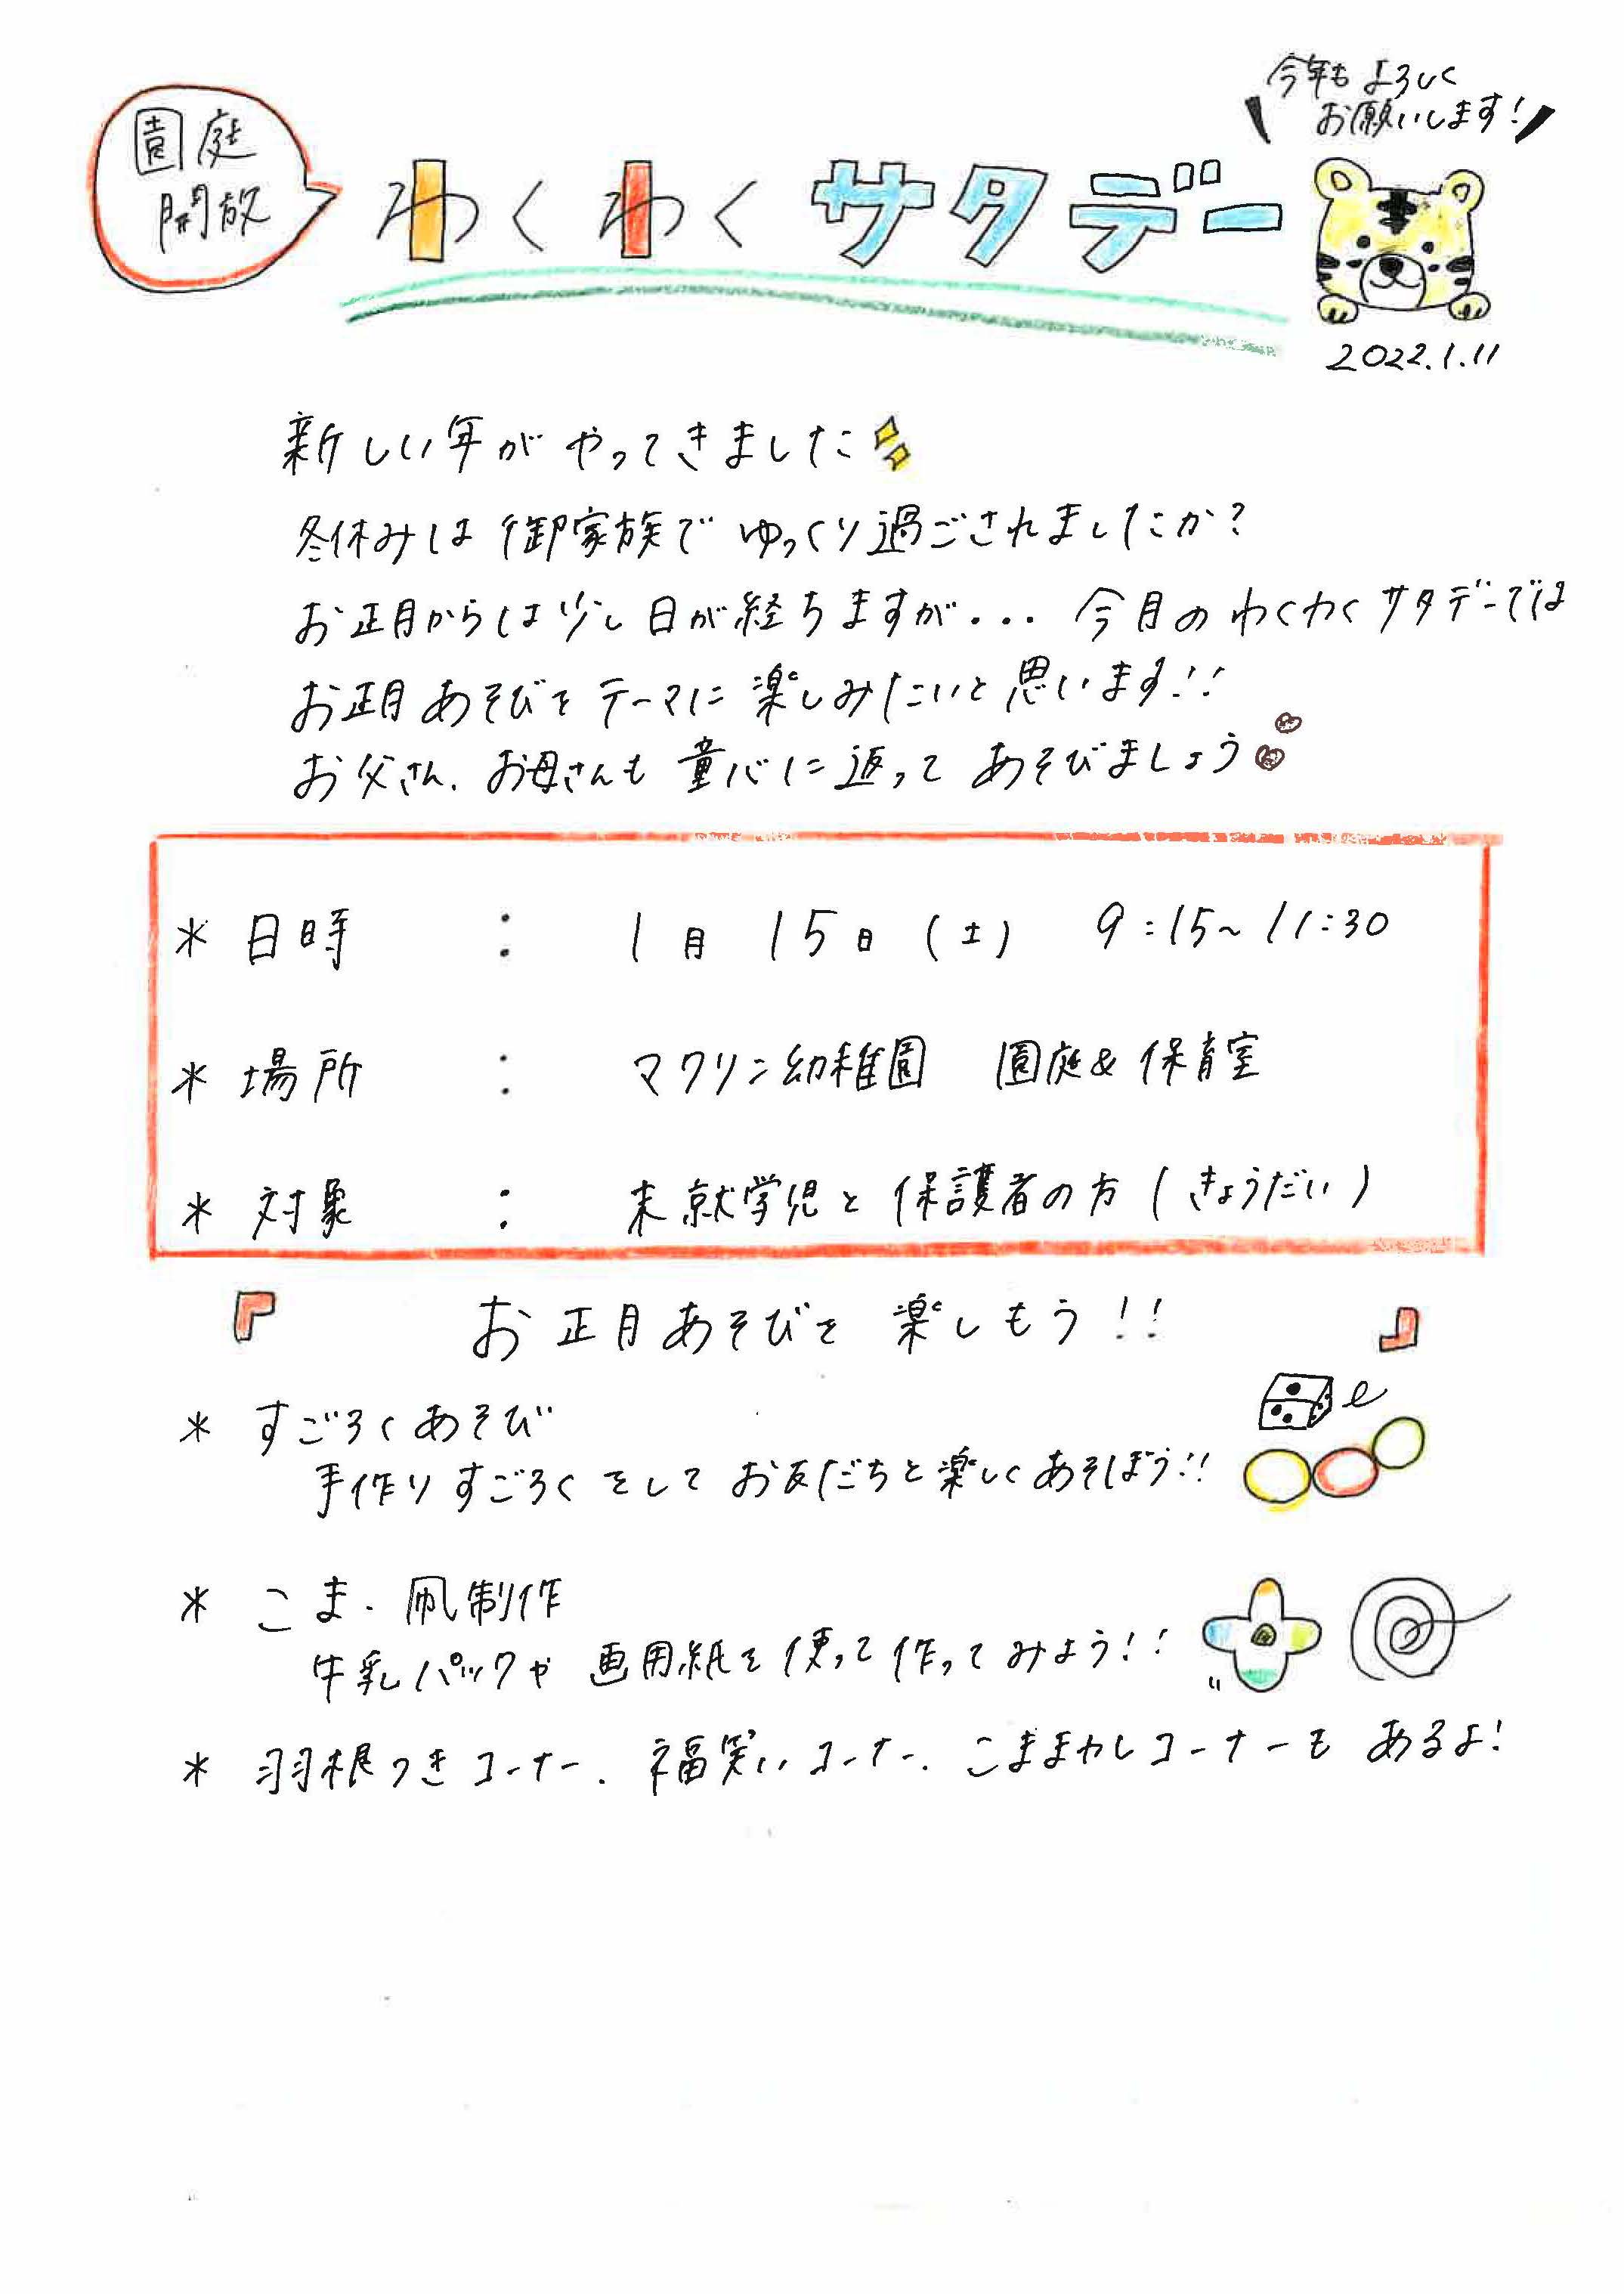 今年もよろしく
お願いします!
園庭
開放
わくわくサタデー
2022.1.11
新しい年がやってきました
冬休みは御家族でゆっくり過ごされましたか?
お正月からは少し日が経ちますが... 今月のわくわくサタデーでは
お正月あそびをテーマに楽しみたいと思います!!
お父さん、お母さんも童心に返ってあそびましょう
* 日時 : 1月15日(土) 9:15~11:30
* 場所 : マクリン幼稚園 園庭&保育室
* 対象 : 未就学児と保護者の方(きょうだい)
『 お正月あそびを楽しもう!! 』
* すごろくあそび
手作りすごろくをしてお友だちと楽しくあそぼう!!
* こま・凧制作
牛乳パックや画用紙を使って作ってみよう!!
* 羽根つきコーナー、福笑いコーナー、こままわしコーナーもあるよ!